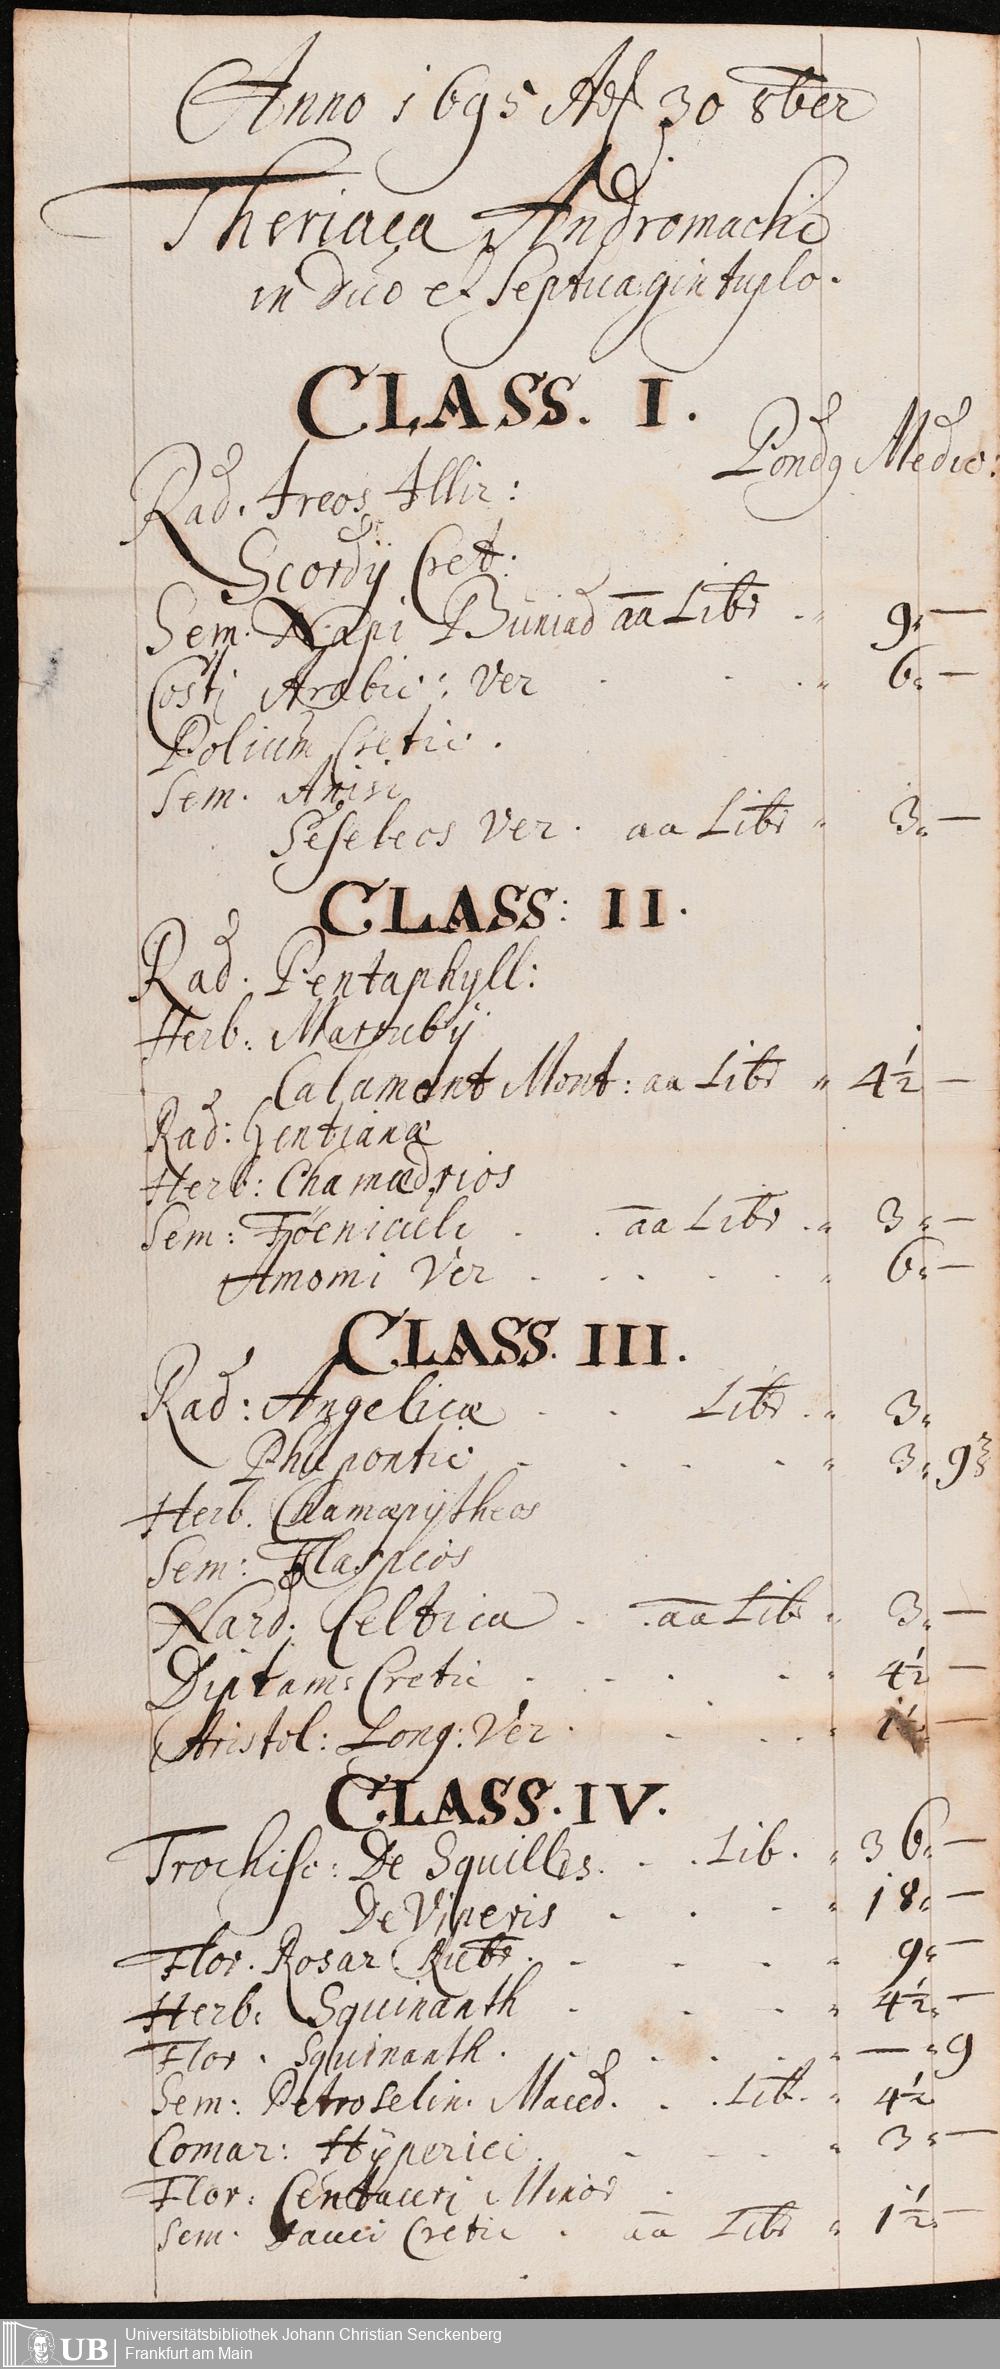 Anno 1695 Adj 30 8ber
Theriaca Andromachi
in duo et septuagintuplo.
CLASS. I.
Pondq Medic:
Rad. Ireos Illir:
Scordij Cret:
Sem. Napi Buniad aa Libr " 9" —
Costj Arabic: Ver " 6" —
Polium Cretic.
Sem. Anisi
Seseleos Ver. aa Libr " 3" —
CLASS: II.
Rad. Pentaphyll:
Herb: Marrubij
Calament Mont: aa Libr " 4½ —
Rad: Gentianæ
Herb: Chamædrios
Sem: Foeniculi . . aa Libr . " 3" —
Amomi Ver . . . . . " 6" —
CLASS. III.
Rad: Angelicæ . . Libr . " 3"
Rhapontic . . . . " 3" 9℥
Herb. Chamæpijtheos
Sem: Tlaspios
Nard. Celtica . . aa Libr " 3" —
Diptam: Cretic . . . . " 4½ —
Aristol: Long: Ver . . . . " 1½ —
CLASS. IV.
Trochisc: De Squillis . . . Lib. " 36" —
De Viperis . . . " 18" —
Flor. Rosar Rubr . . . . " 9" —
Herb: Squinanth . . . " 4½" —
Flor. Squinanth . . . . . " — " 9
Sem: Petroselin. Maced. . . Lib. " 4½
Comar: Hÿperici . . . . " 3" —
Flor: Centauri Minor .
Sem. Dauci Cretic . aa Libr " 1½" —
UB
Universitätsbibliothek Johann Christian Senckenberg
Frankfurt am Main